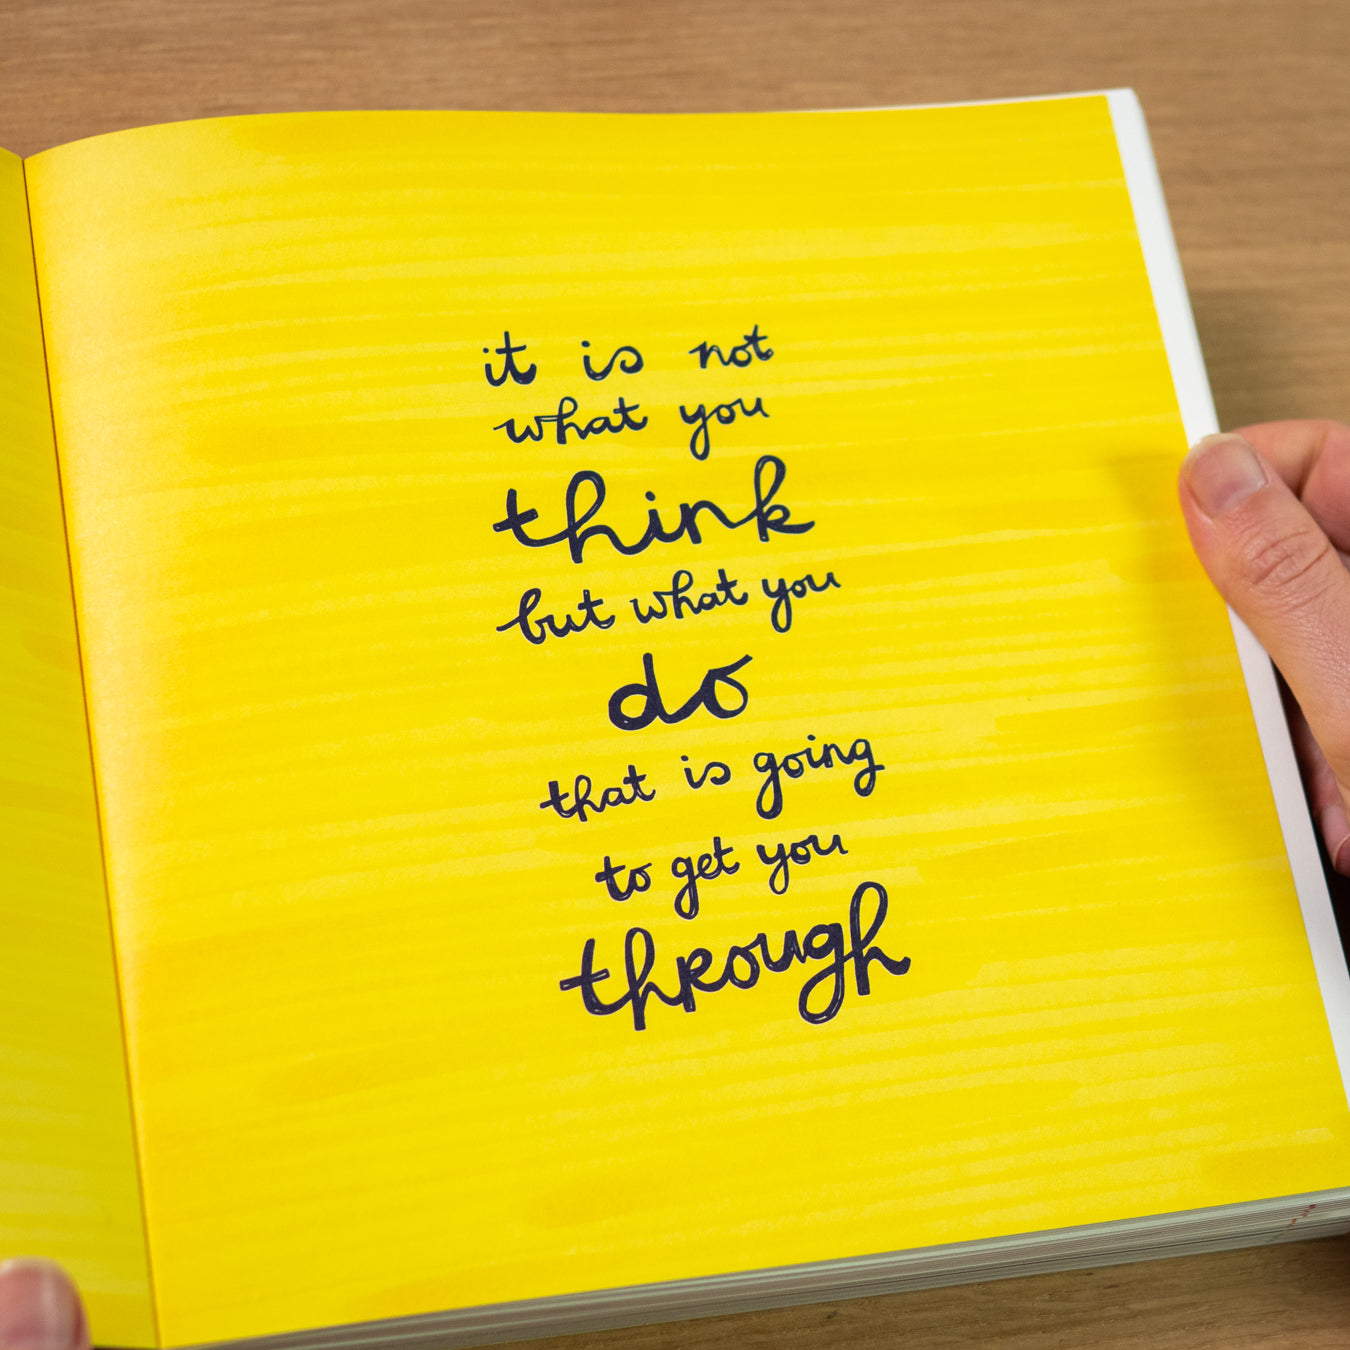 it is not
what you
think
but what you
do
that is going
to get you
through